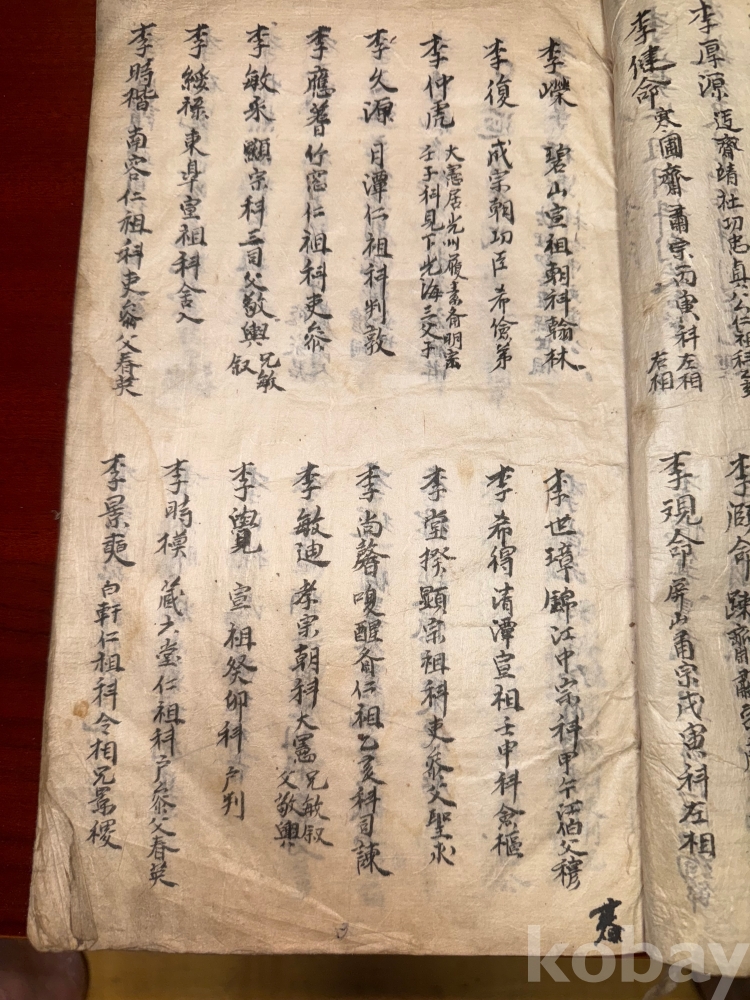 李厚源 迃齋靖社功忠貞公仁祖科
李健命 寒圃齋 肅宗丙寅科左相
右相
李頤命 疎齋肅宗
李觀命 屏山肅宗戊寅科左相
李嶸 碧山宣祖朝科翰林
李復 成宗朝功臣 希儉弟
李仲虎 大憲居光川履素齋明宗
壬子科見下光海三父子
李久源 月潭仁祖科判敦
李應蓍 竹窓仁祖科吏參
李敏采 顯宗科三司父敬輿 兄敏
叙
李綏祿 東皐宣祖科舍人
李時楷 南谷仁祖科吏參父春英
李世璋 錦江中宗科甲午江伯父穆
李希得 清潭宣祖壬申科僉樞
李堂揆 顯宗祖科吏參父聖求
李尚馨 嗅醒齋仁祖乙亥科司諫
李敏迪 孝宗朝科大憲 兄敏叙
父敬輿
李覺 宣祖癸卯科戶判
李時模 藏六堂仁祖科戶參父春英
李景奭 白軒仁祖科令相兄景稷
kobay